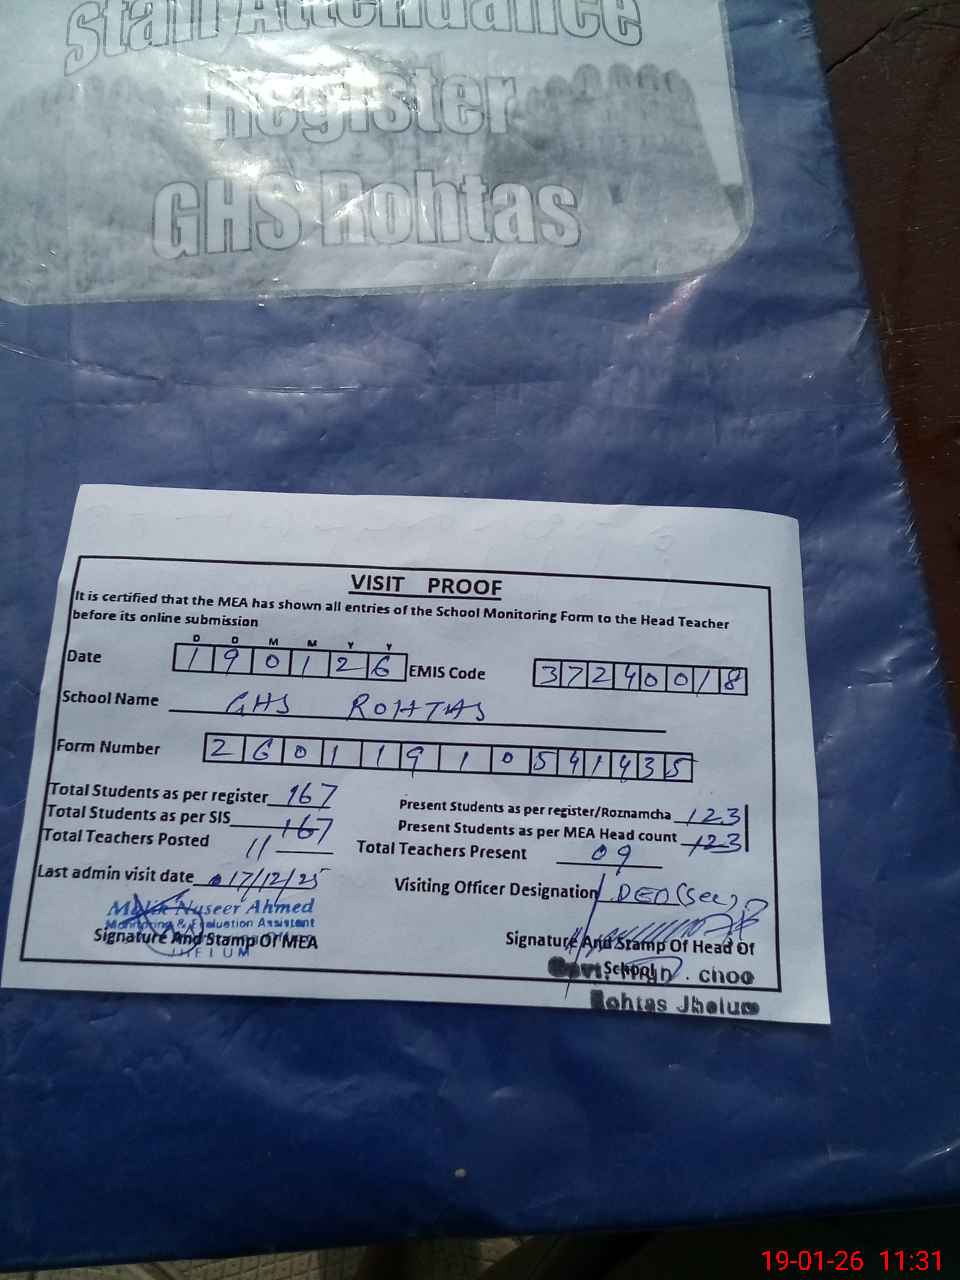 Staff Attendance
Register
GHS Rohtas
VISIT PROOF
It is certified that the MEA has shown all entries of the School Monitoring Form to the Head Teacher
before its online submission
D D M M Y Y
Date 1 9 0 1 2 6 EMIS Code 3 7 2 4 0 0 1 8
School Name GHS ROHTAS
Form Number 2 6 0 1 1 9 1 0 5 4 1 4 3 5
Total Students as per register 167 Present Students as per register/Roznamcha 123
Total Students as per SIS 167 Present Students as per MEA Head count 123
Total Teachers Posted 11 Total Teachers Present 09
Last admin visit date 17/12/25 Visiting Officer Designation DEO (Sec)
Malik Naseer Ahmed
Monitoring & Evaluation Assistant
Signature And Stamp Of MEA Signature And Stamp Of Head Of
JHELUM
School
Govt. High choo
Rohtas Jhelum
19-01-26 11:31